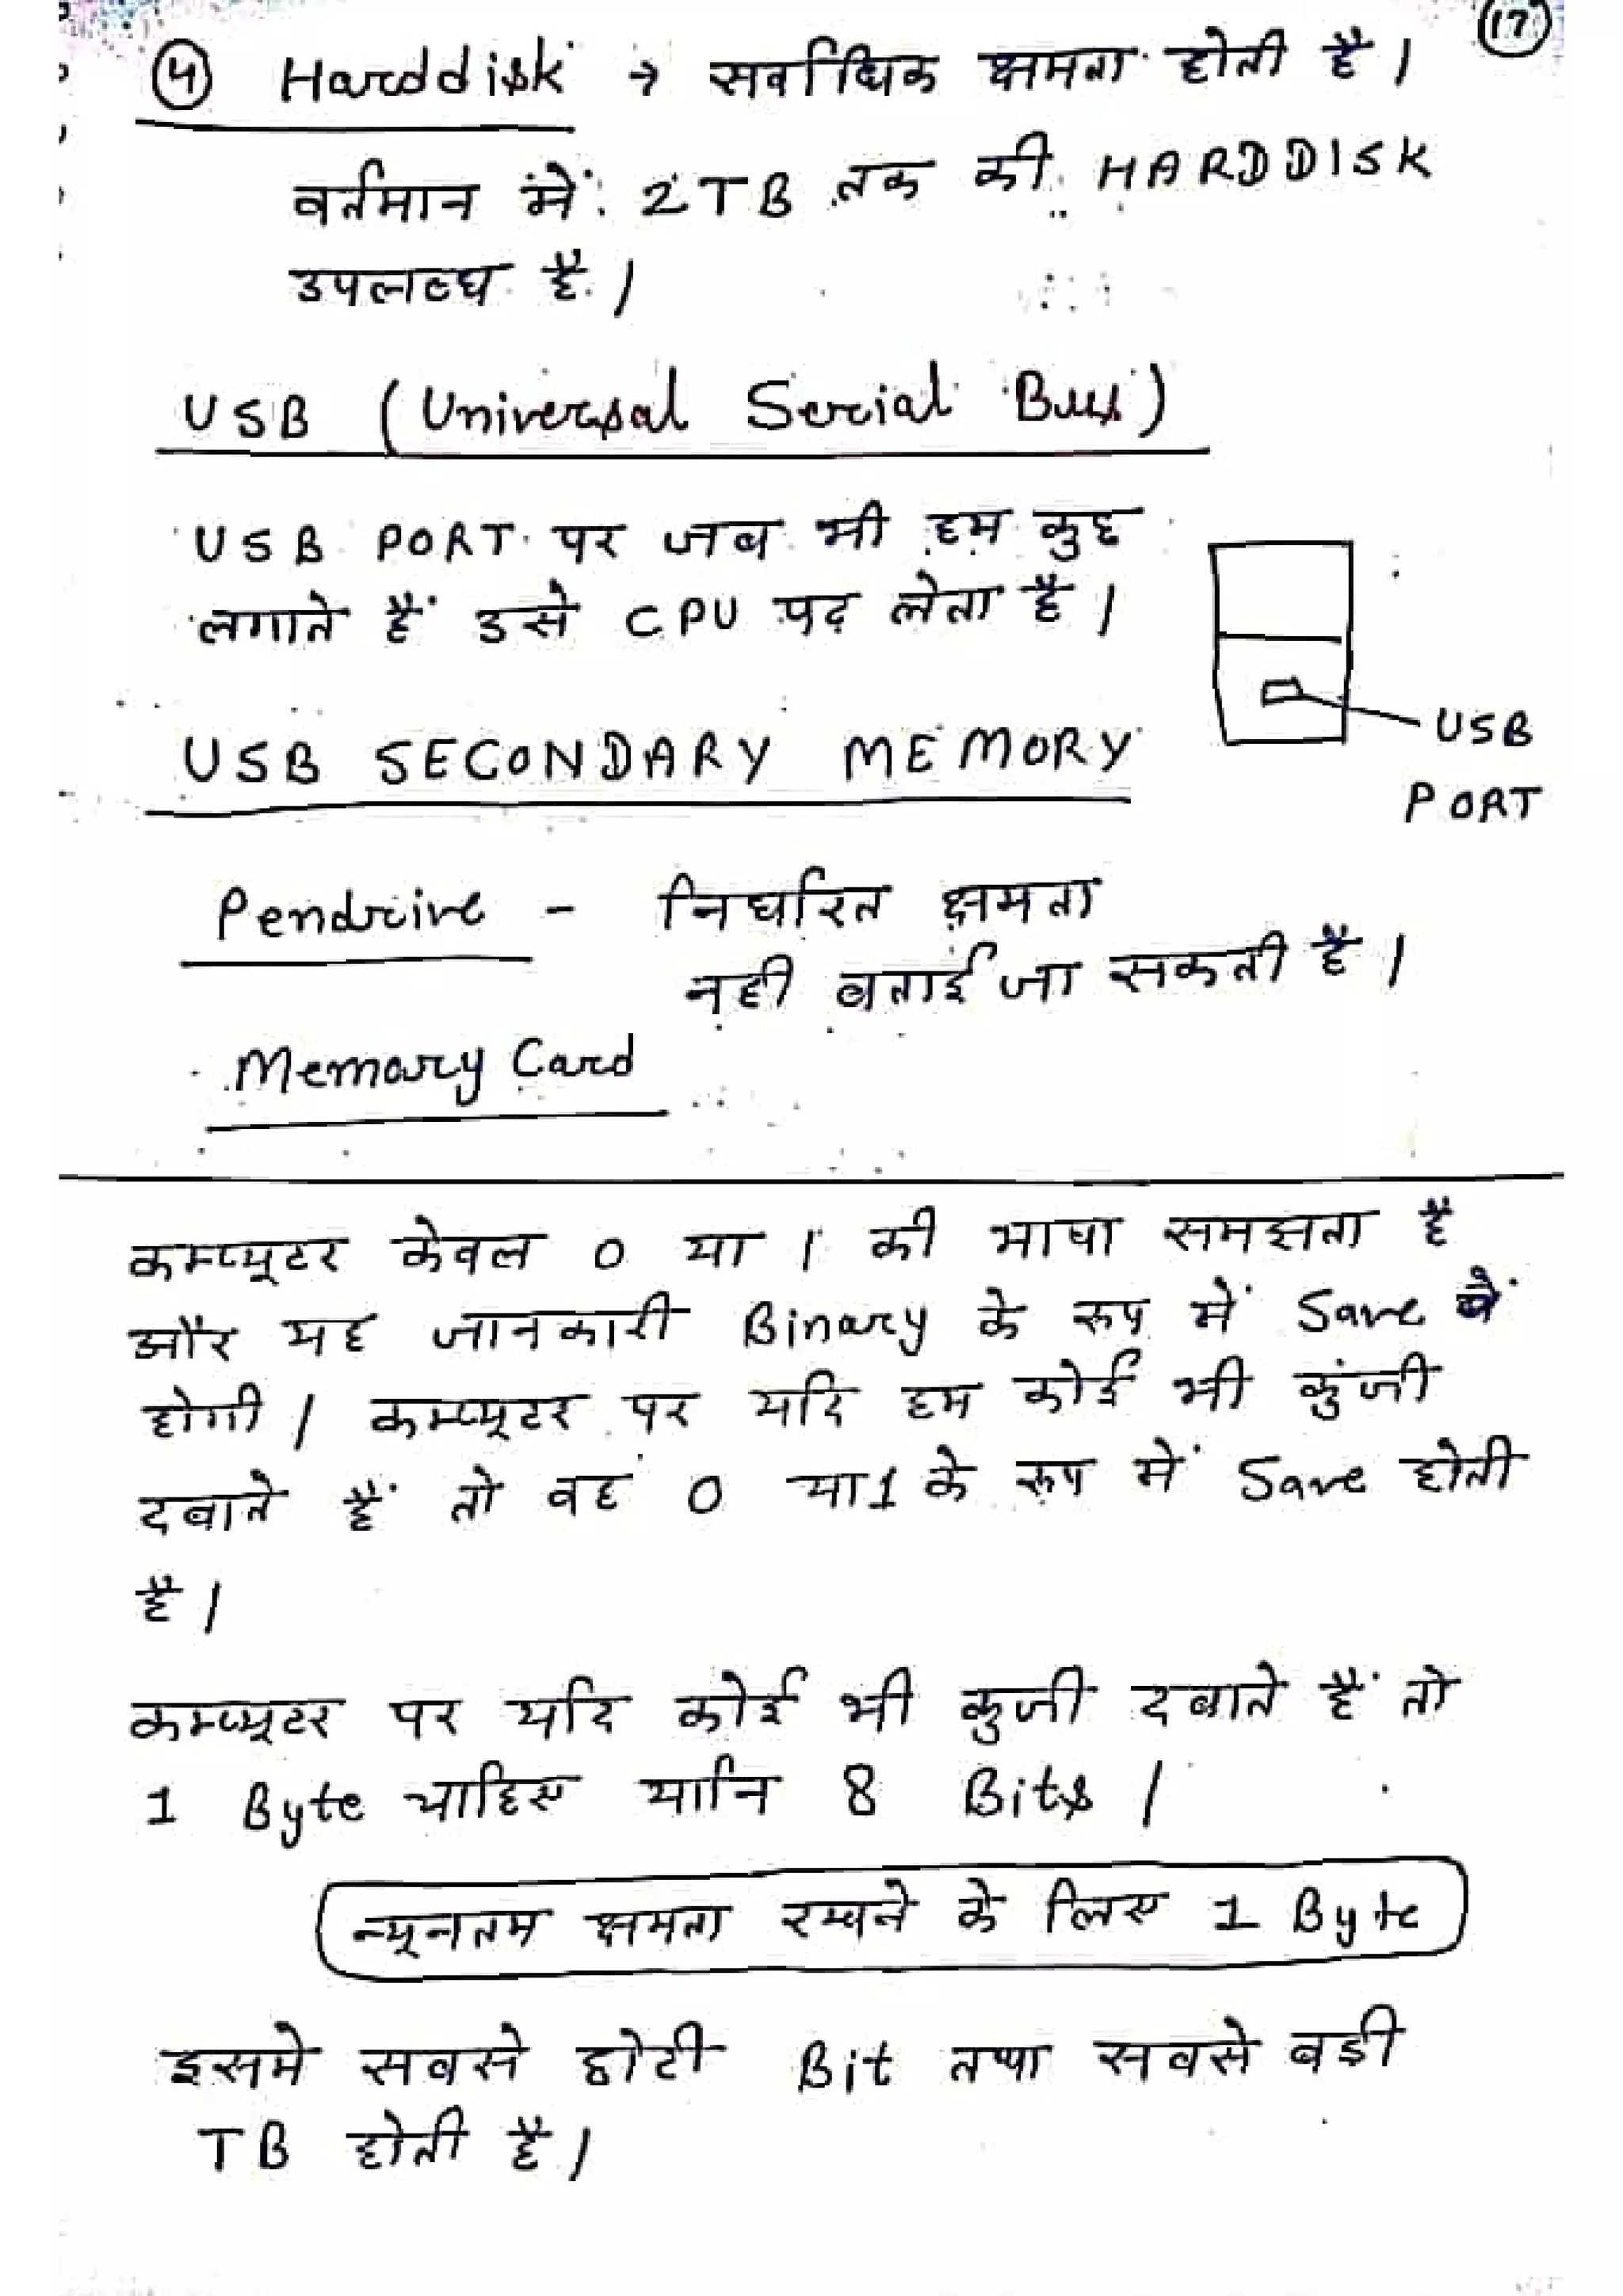 17
④ Harddisk → सर्वाधिक क्षमता होती है।
वर्तमान में 2TB तक की HARDDISK
उपलब्ध है।
USB (Universal Serial Bus)
USB PORT पर जब भी हम कुछ
लगाते हैं उसे CPU पढ़ लेता है।
USB
PORT
USB SECONDARY MEMORY
Pendrive - निर्धारित क्षमता
नही बताई जा सकती है।
Memory Card
कम्प्यूटर केवल 0 या 1 की भाषा समझता है
और यह जानकारी Binary के रूप में Save
होगी। कम्प्यूटर पर यदि हम कोई भी कुंजी
दबाते हैं तो वह 0 या 1 के रूप में Save होती
है।
कम्प्यूटर पर यदि कोई भी कुजी दबाते हैं तो
1 Byte चाहिए यानि 8 Bits।
न्यूनतम क्षमता रखने के लिए 1 Byte
इसमे सबसे छोटी Bit तथा सबसे बडी
TB होती है।